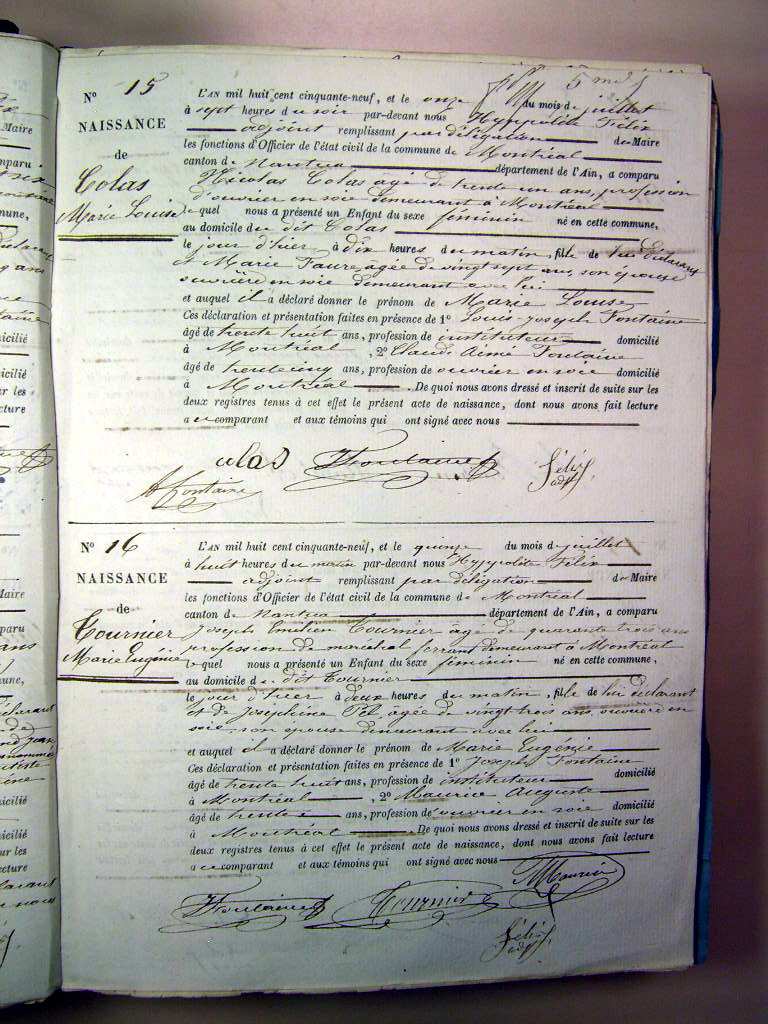 5
N° 15
NAISSANCE
de
Colas
Marie Louise
L'AN mil huit cent cinquante-neuf, et le onze du mois de juillet
à sept heures du soir par-devant nous Hyppolite Félix
adjoint remplissant par délégation de Maire
les fonctions d'Officier de l'état civil de la commune de Montréal
canton de Nantua département de l'Ain, a comparu
Nicolas Colas agé de trente un ans, profession
d'ouvrier en soie demeurant à Montréal
lequel nous a présenté un Enfant du sexe féminin né en cette commune,
au domicile du dit Colas
le jour d'hier, à dix heures du matin, fille de lui déclarant
et Marie Faure, agée de vingt sept ans, son épouse
ouvrière en soie demeurant avec lui
et auquel il a déclaré donner le prénom de Marie Louise
Ces déclaration et présentation faites en présence de 1° Louis Joseph Fontaine
âgé de trente huit ans, profession de instituteur domicilié
à Montréal, 2° Claude Aimé
âgé de trente cinq ans, profession de ouvrier en soie domicilié
à Montréal. De quoi nous avons dressé et inscrit de suite sur les
deux registres tenus à cet effet le présent acte de naissance, dont nous avons fait lecture
au comparant et aux témoins qui ont signé avec nous
colas
Fontaine
Félix
adj
N° 16
NAISSANCE
de
Tournier
Marie Eugénie
L'AN mil huit cent cinquante-neuf, et le quinze du mois de juillet
à huit heures du matin par-devant nous Hyppolite Félix
adjoint remplissant par délégation de Maire
les fonctions d'Officier de l'état civil de la commune de Montréal
canton de Nantua département de l'Ain, a comparu
Joseph Emilien Tournier agé de quarante trois ans
profession de maréchal ferrant demeurant à Montréal
lequel nous a présenté un Enfant du sexe féminin né en cette commune,
au domicile du dit Tournier
le jour d'hier à deux heures du matin, fille de lui déclarant
et de Joséphine Pel, agée de vingt trois ans, ouvrière en
soie, son épouse demeurant avec lui
et auquel il a déclaré donner le prénom de Marie Eugénie
Ces déclaration et présentation faites en présence de 1° Joseph Fontaine
âgé de trente huit ans, profession de instituteur domicilié
à Montréal, 2° Maurice Auguste
âgé de trente ans, profession de ouvrier en soie domicilié
à Montréal. De quoi nous avons dressé et inscrit de suite sur les
deux registres tenus à cet effet le présent acte de naissance, dont nous avons fait lecture
au comparant et aux témoins qui ont signé avec nous
Tournier
Félix
adj